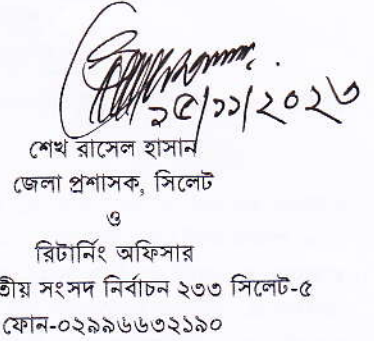 ২৫/১১/২০২৩
শেখ রাসেল হাসান
জেলা প্রশাসক, সিলেট
ও
রিটার্নিং অফিসার
তীয় সংসদ নির্বাচন ২৩৩ সিলেট-৫
ফোন-০২৯৯৬৬৩২১৯০